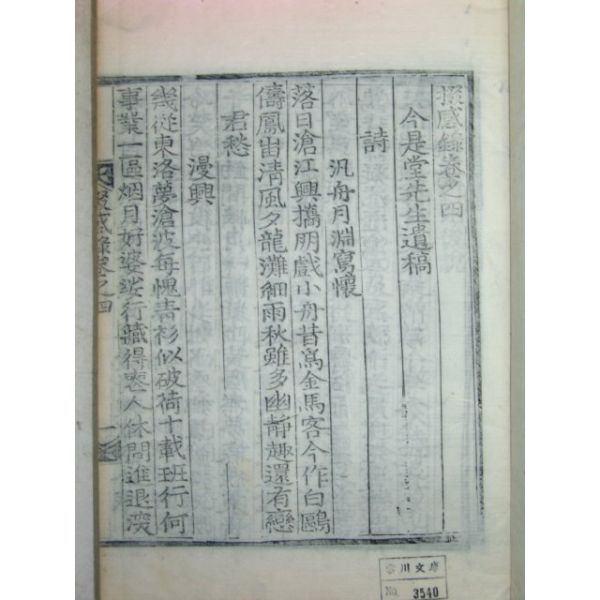 撰感錄卷之四
今是堂先生遺稿
詩
汎舟月淵寫懷
落日滄江興攜朋戲小舟昔爲金馬客今作白鷗
儔鳳凿清風夕龍灘細雨秋雖多幽靜趣還有戀
君愁
漫興
幾從東洛夢滄波每愳靑衫似破荷十載班行何
事業一區烟月好婆娑行藏得喪人休問進退
感錄卷之四
川文庫
No. 3540